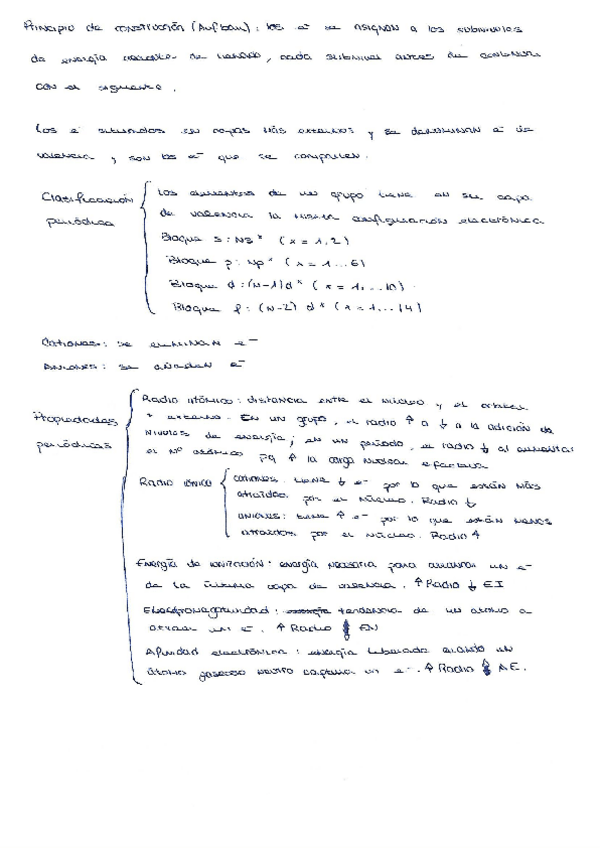 Principio de construcción (Aufbau): los e⁻ se asignan a los subniveles
de energía creciente de llenado, cada subnivel antes de continuar
con el siguiente.
Los e⁻ situados en capas más externas y se denominan e⁻ de
valencia, y son los e⁻ que se comparten.
Clasificación periódica
Los elementos de un grupo tiene en su capa
de valencia la misma configuración electrónica
Bloque s: ns^x (x = 1, 2)
Bloque p: np^x (x = 1...6)
Bloque d: (n-1)d^x (x = 1,...10)
Bloque f: (n-2) d^x (x = 1...14)
Cationes: se eliminan e⁻
Aniones: se añaden e⁻
Propiedades periódicas
Radio atómico: distancia entre el núcleo y el orbital
+ externo. En un grupo, el radio ↑ a ↓ a la adición de
niveles de energía; en un periodo, el radio ↓ al aumentar
el nº atómico pq ↑ la carga nuclear efectiva
Radio iónico
cationes: tiene ↓ e⁻ por lo que están más
atraídos por el núcleo. Radio ↓
aniones: tiene ↑ e⁻ por lo que están menos
atraídos por el núcleo. Radio ↑
Energía de ionización: energía necesaria para arrancar un e⁻
de la última capa de valencia. ↑ Radio ↓ EI
Electronegatividad: tendencia de un átomo a
atraer un e⁻. ↑ Radio EN
Afinidad electrónica: energía liberada cuando un
átomo gaseoso neutro captura un e⁻. ↑ Radio AE.